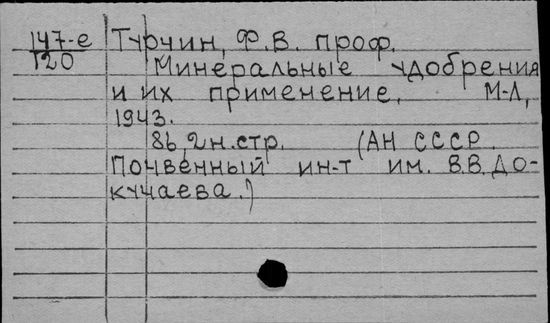 147-е Турчин, Ф.В. проф.
Т20 Минеральные удобрения
и их применение. М-Л,
1943.
86, 2 н.стр. (АН СССР.
Почвенный ин-т им. В.В.До-
кучаева.)